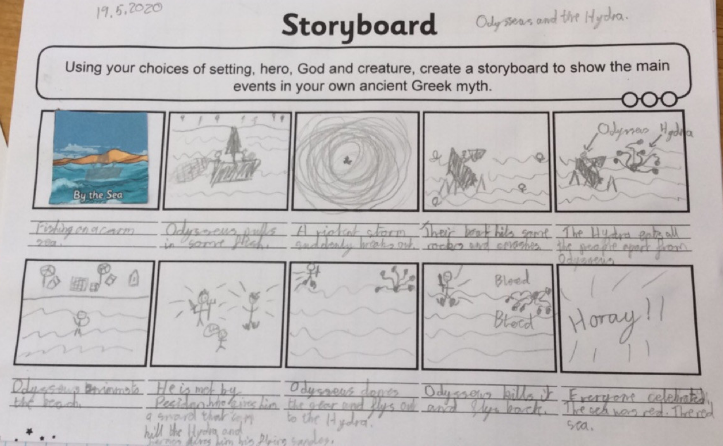 19.5.2020
Odysseus and the Hydra.
Storyboard
Using your choices of setting, hero, God and creature, create a storyboard to show the main
events in your own ancient Greek myth.
By the Sea
Odysseus Hydra
Fishing on a carm
sea.
Odysseus pulls
in some fish.
A violent storm
suddenly breaks out.
Their boat hits some
rocks and smashes
The Hydra eats all
the people apart from
Odysseus
Blood
Blood
Horay!!
Odysseus swims to
the beach.
He is met by
Posidon he gives him
a sword that can
kill the Hydra and
Hermes gives him his flying sandals.
Odysseus
the gear and flys out
to the Hydra.
Odysseus kills it
and flys back.
Everyone celebrated.
The sea was red. The red
sea.